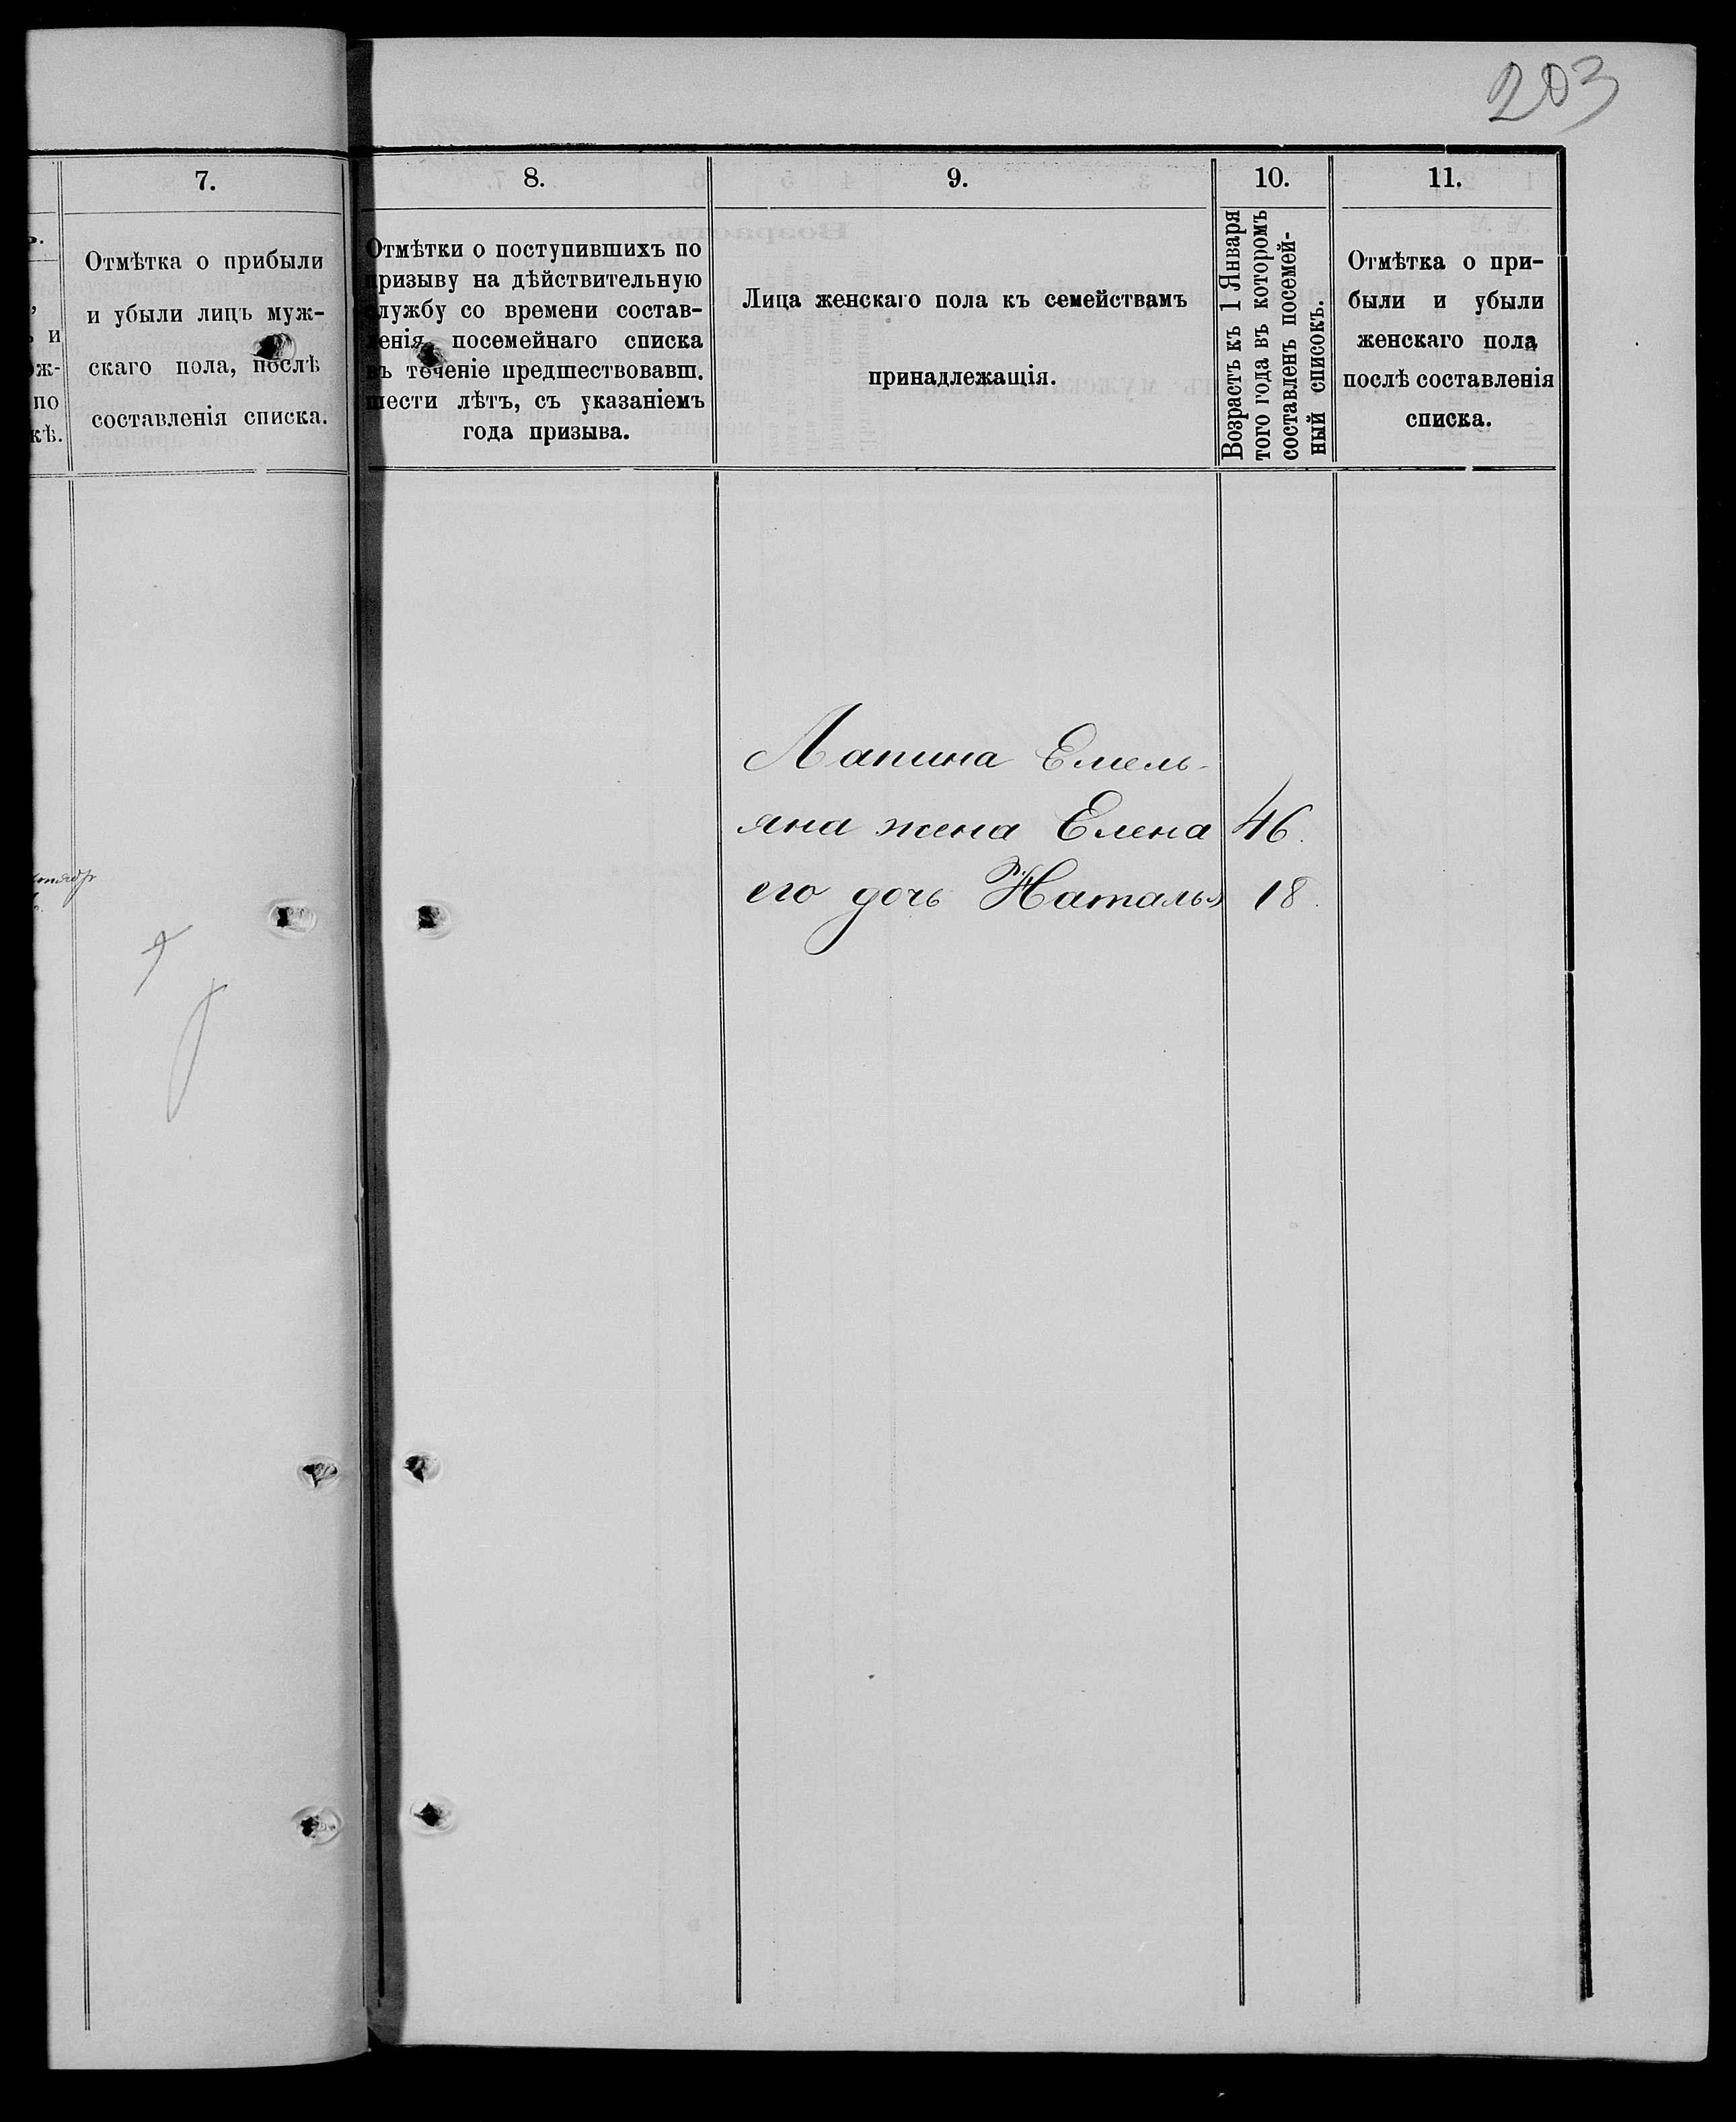 203
7.
Отмѣтка о прибыли
и убыли лицъ муж-
скаго пола, послѣ
составленія списка.
и
ж-
по
кѣ.
8.
Отмѣтки о поступившихъ по
призыву на дѣйствительную
службу со времени состав-
ленія посемейнаго списка
въ теченіе предшествовавш.
шести лѣтъ, съ указаніемъ
года призыва.
9.
Лица женскаго пола къ семействамъ
принадлежащія.
10.
Возрастъ къ 1 Января
того года въ которомъ
составленъ посемей-
ный списокъ.
11.
Отмѣтка о при-
были и убыли
женскаго пола
послѣ составленія
списка.
Лапина Емель-
яна жена Елена 46.
его дочь Наталья 18.